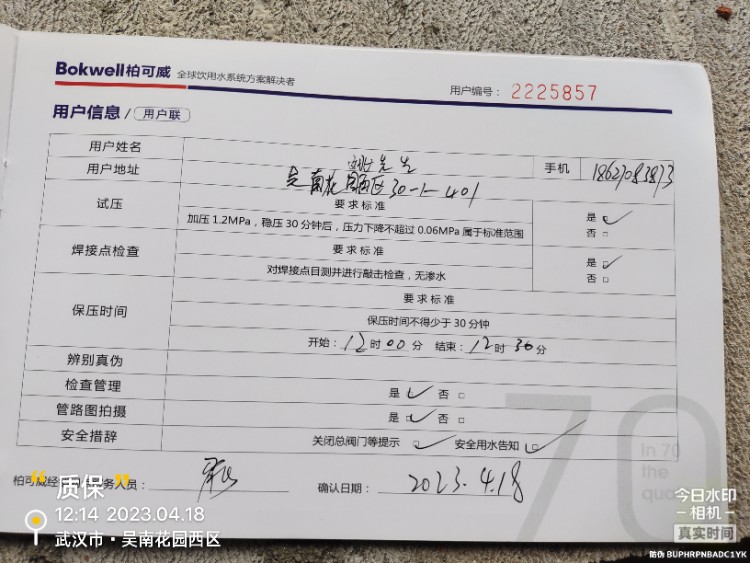 Bokwell柏可威 全球饮用水系统方案解决者
用户编号： 2225857
用户信息 / 用户联
用户姓名 姚先生 手机
用户地址 吴南花园西区30-1-401
试压 要求标准 是 ✓
加压 1.2MPa，稳压 30 分钟后，压力下降不超过 0.06MPa 属于标准范围 否 □
焊接点检查 要求标准 是 □✓
对焊接点目测并进行敲击检查，无渗水 否 □
保压时间 要求标准
保压时间不得少于 30 分钟
开始：12 时 00 分 结束：12 时 30 分
辨别真伪
检查管理 是 ✓ 否 □
管路图拍摄 是 ✓ 否 □
安全措辞 关闭总阀门等提示 □✓ 安全用水告知 □✓
柏可威经 务人员： 确认日期： 2023.4.18
In 70
the
“质保”
12:14 2023.04.18
武汉市·吴南花园西区
70
今日水印
-相机-
真实时间
防伪 BUPHRPNBADC1YK